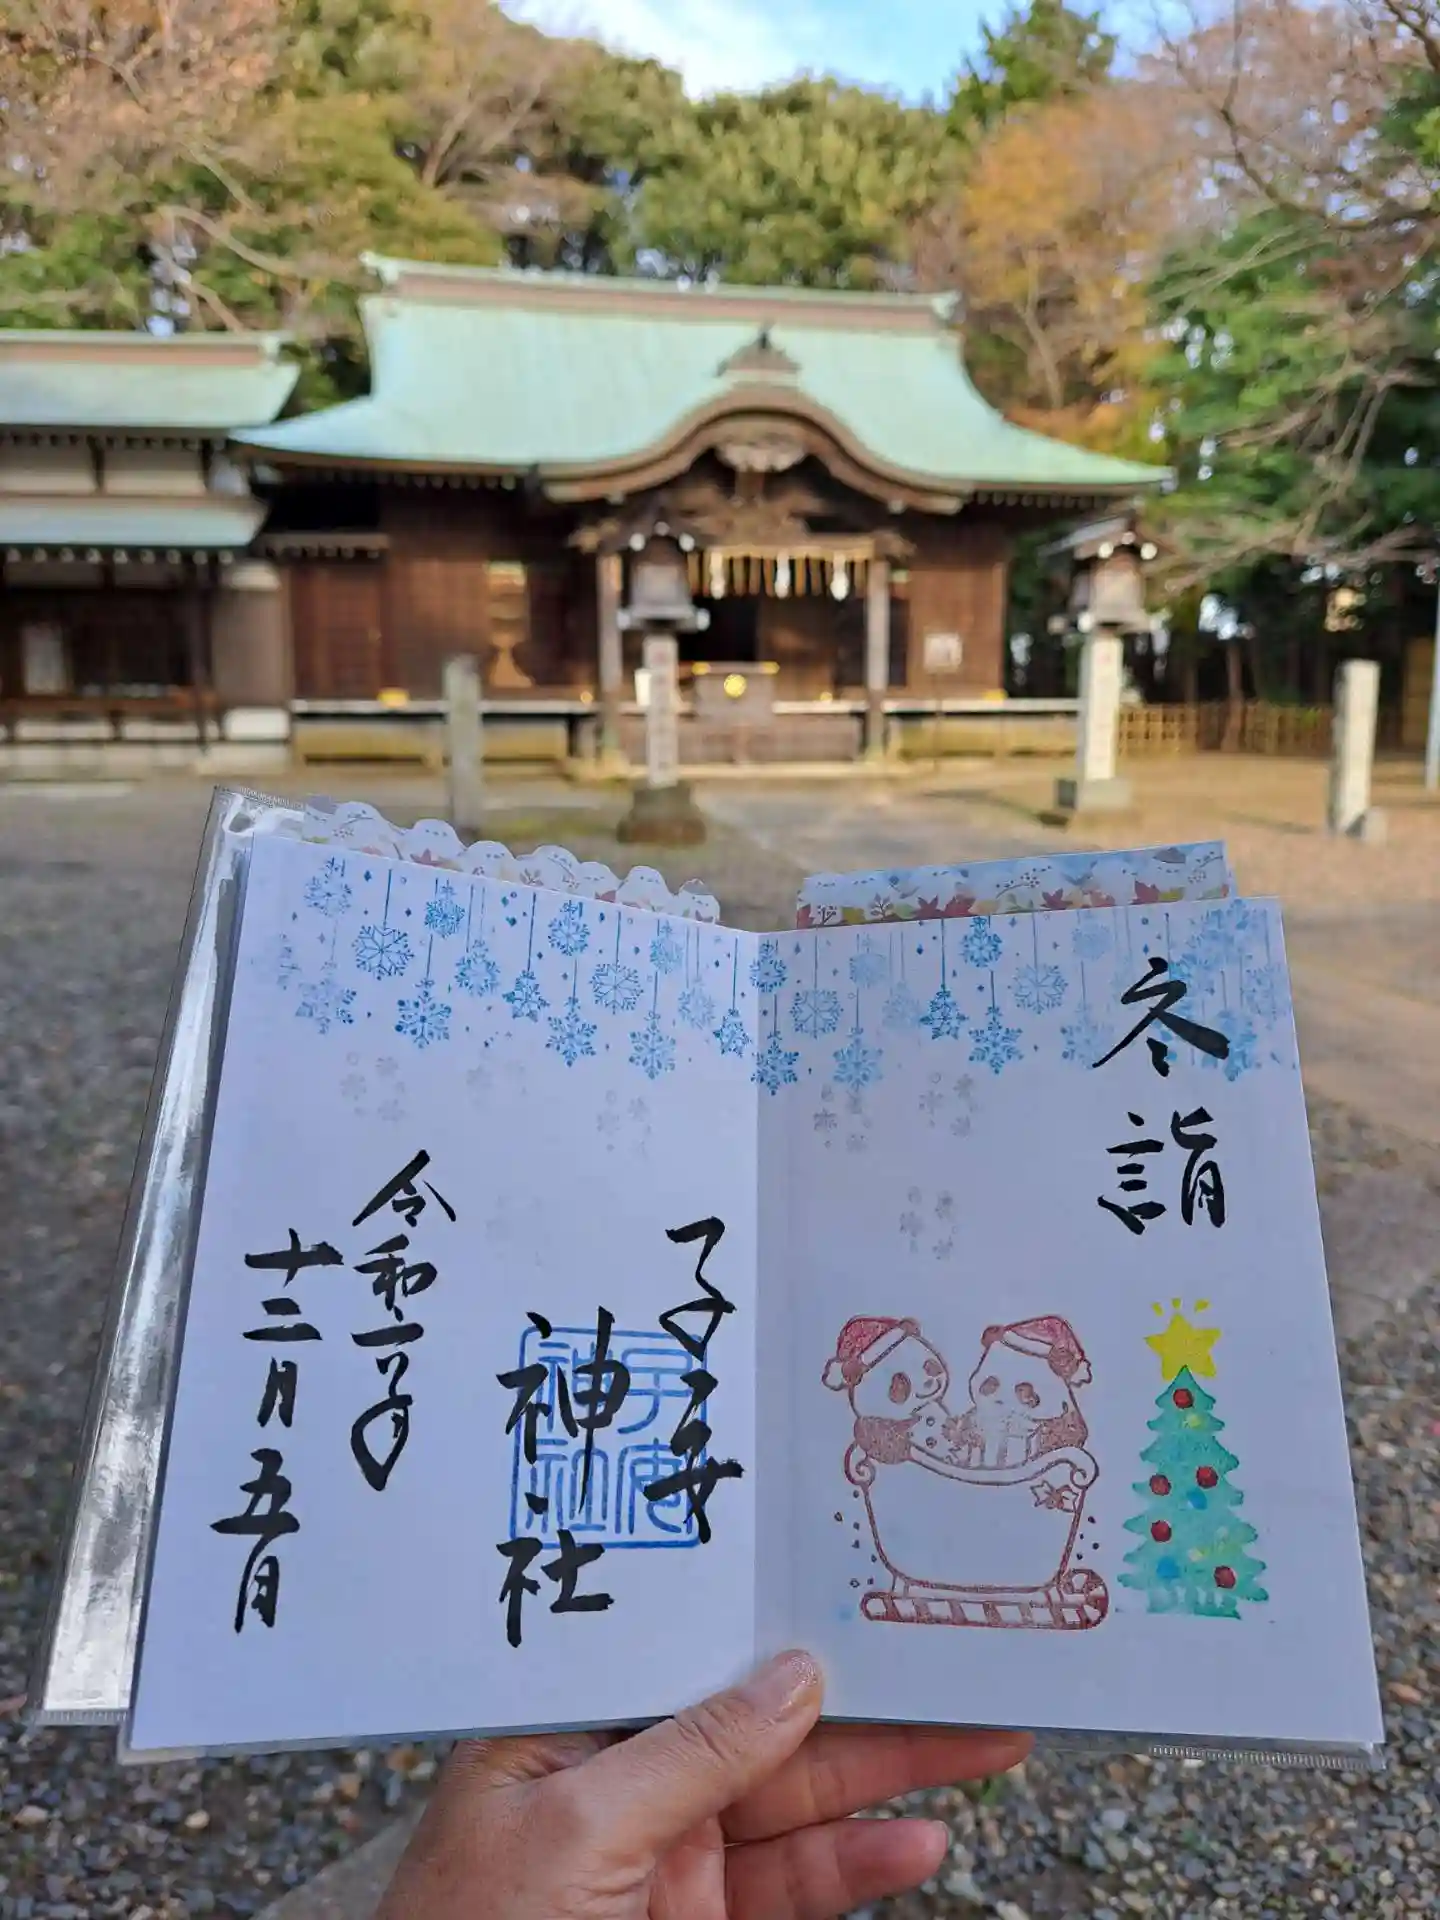 冬詣
子安
神社
子安
神社
令和六年
十二月五日